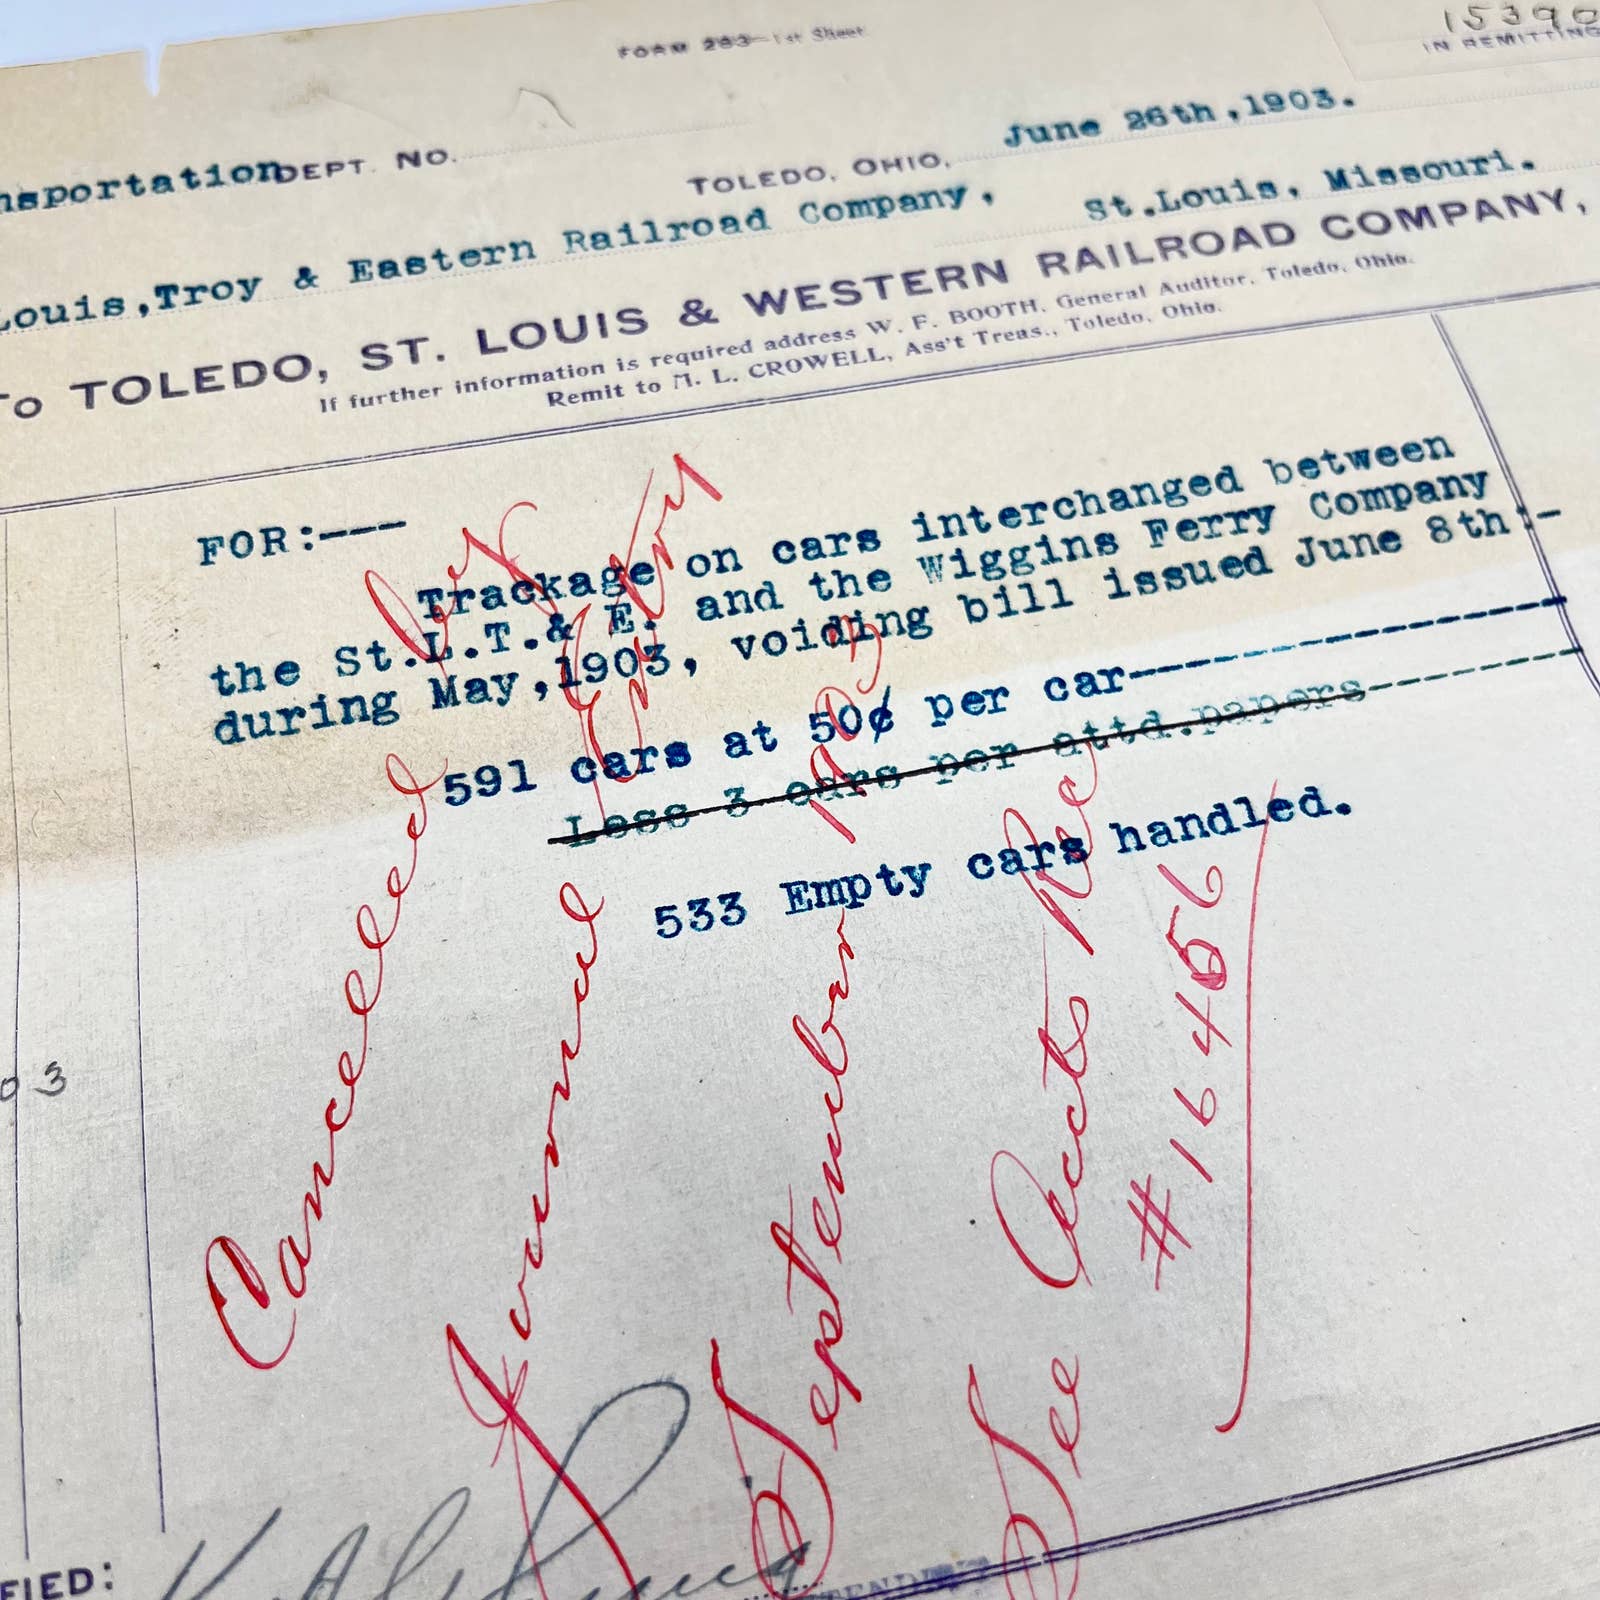 FORM 293—1st Sheet
15390
IN REMITTING
nsportation DEPT. NO.
TOLEDO, OHIO, June 26th,1903.
Louis,Troy & Eastern Railroad Company, St.Louis, Missouri.
To TOLEDO, ST. LOUIS & WESTERN RAILROAD COMPANY,
If further information is required address W. F. BOOTH, General Auditor, Toledo, Ohio.
Remit to M. L. CROWELL, Ass't Treas., Toledo, Ohio.
FOR:---
Trackage on cars interchanged between
the St.L.T.& E. and the Wiggins Ferry Company
during May,1903, voiding bill issued June 8th:-
591 cars at 50¢ per car-------------
Less 3 cars per attd.papers--------
533 Empty cars handled.
03
Cancelled by
Journal Entry
September 1903
See Accts Rec
#16456
FIED:
TENDENT